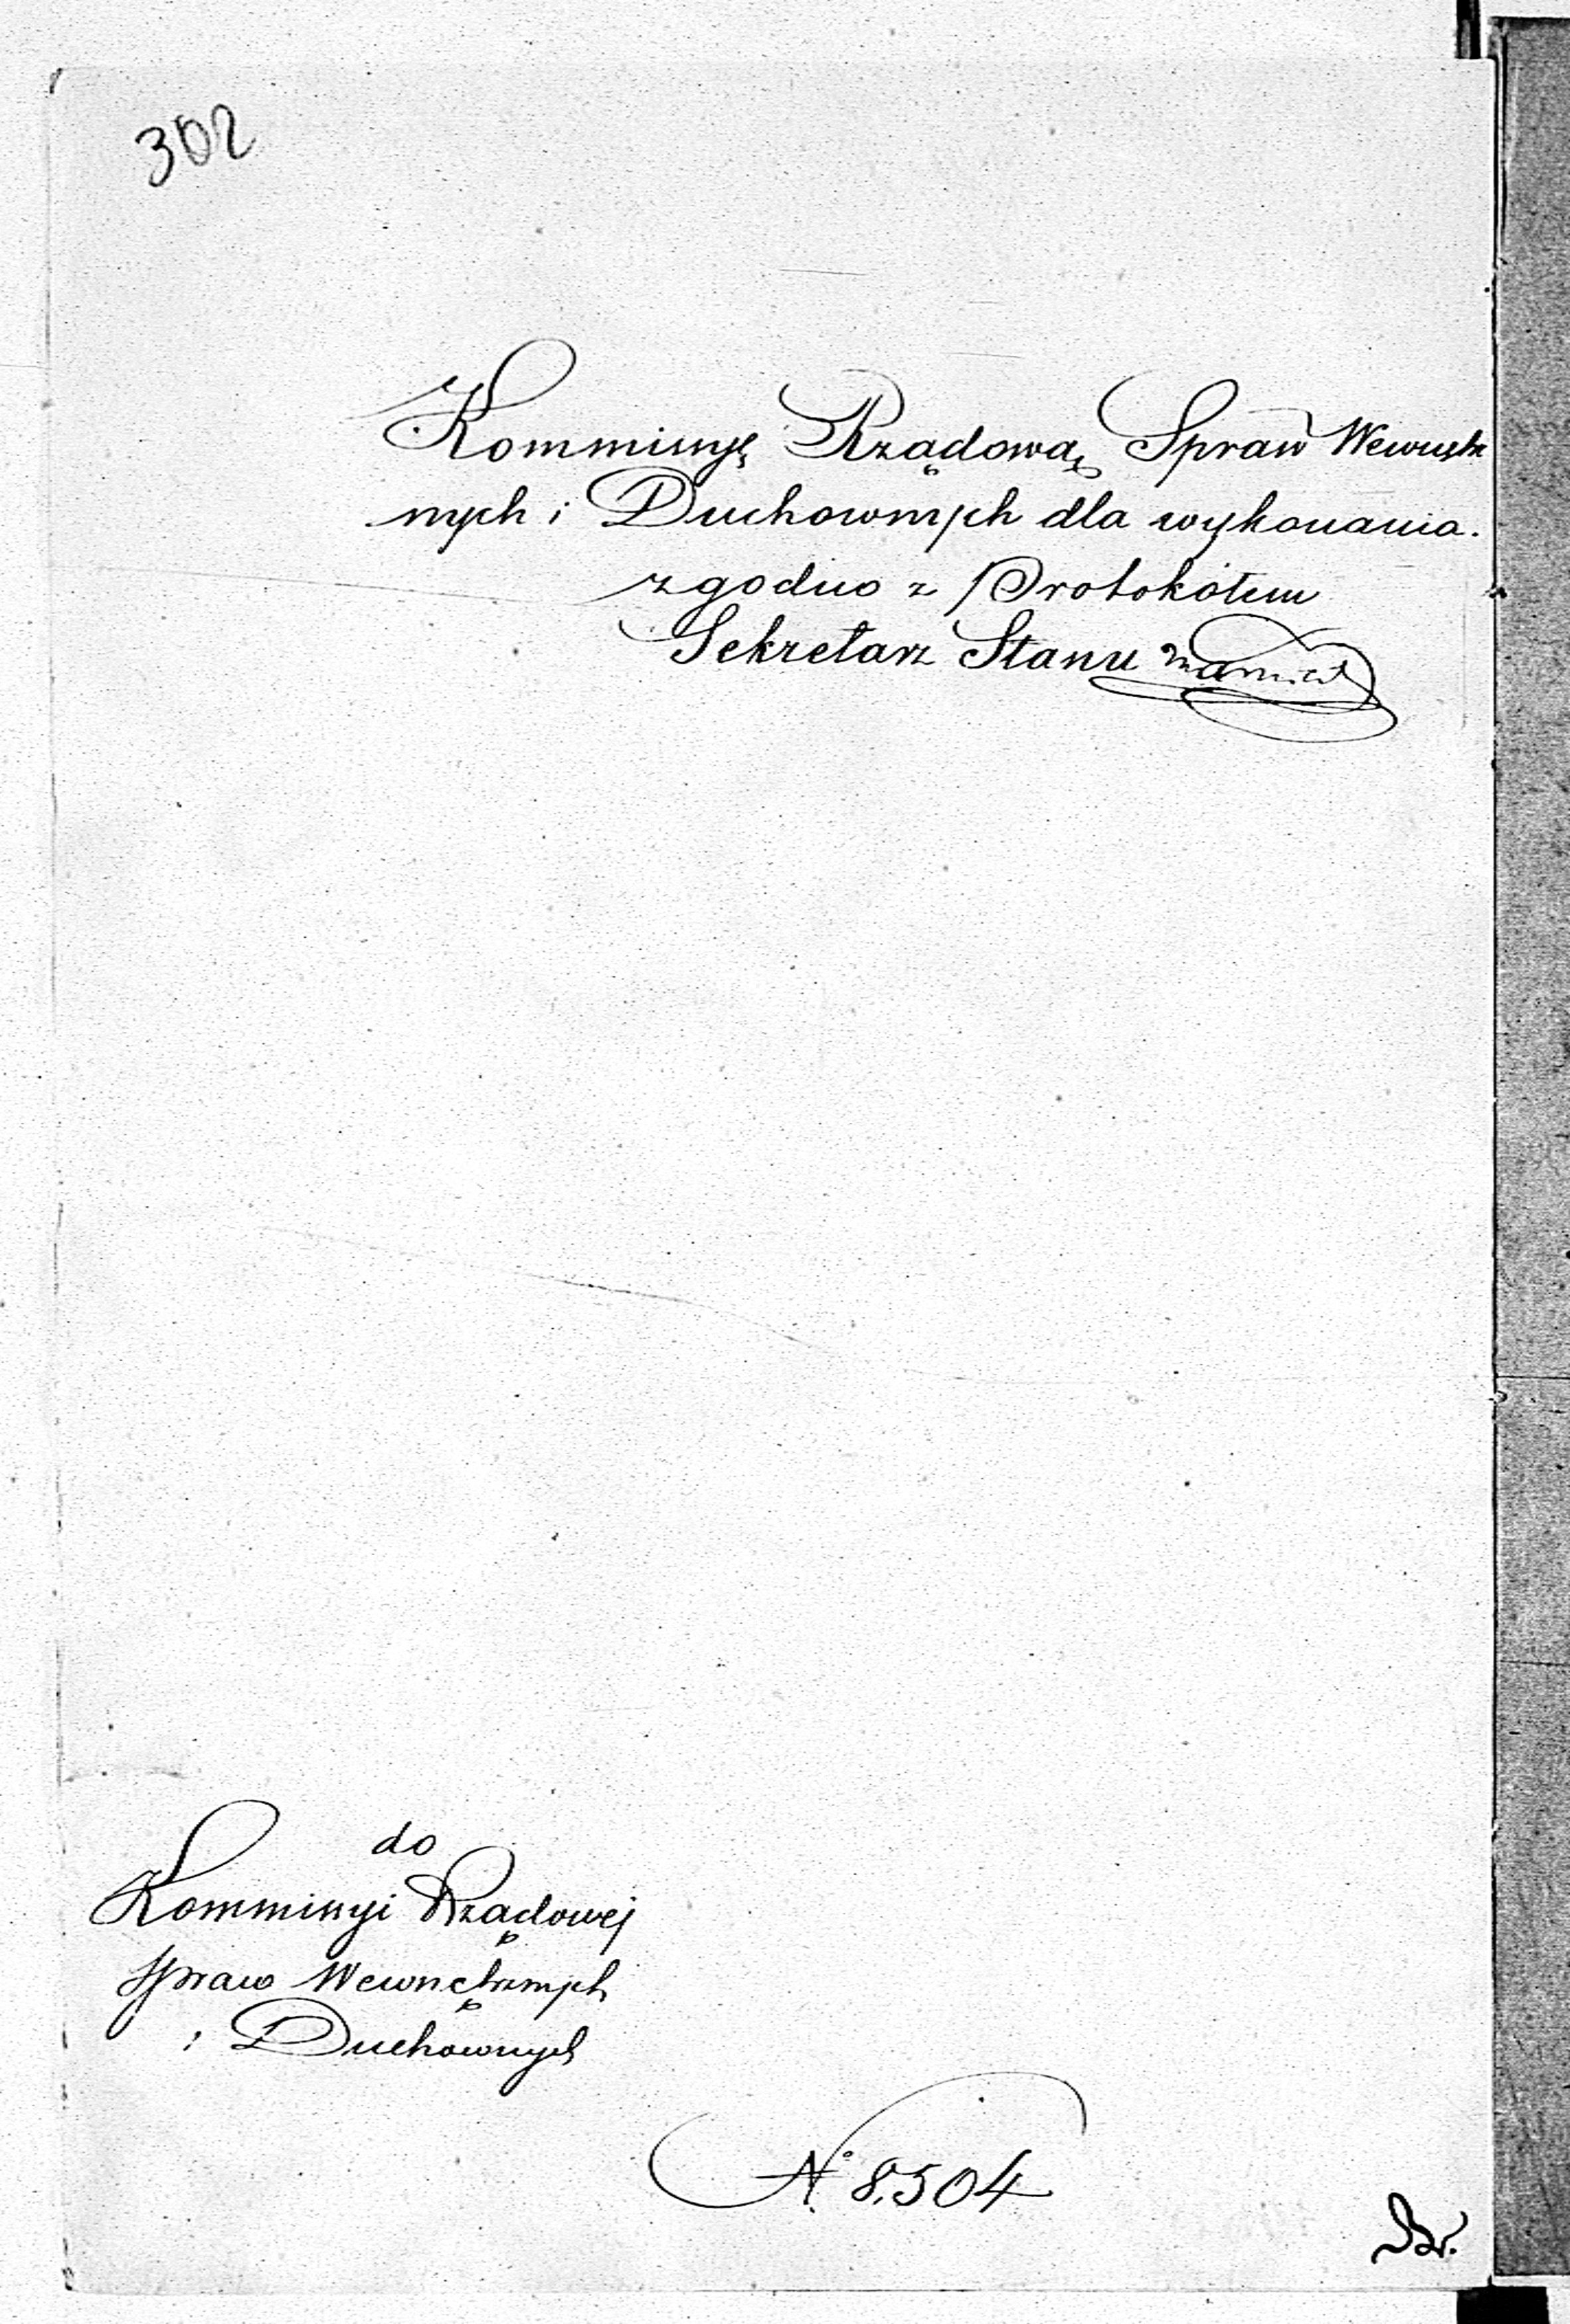 302
Kommissyę Rządową Spraw Wewnętrz
nych i Duchownych dla wykonania.
zgodno z Protokółem
Sekretarz Stanu
do
Kommissyi Rządowej
Spraw Wewnętrznych
i Duchownych
№ 8.504